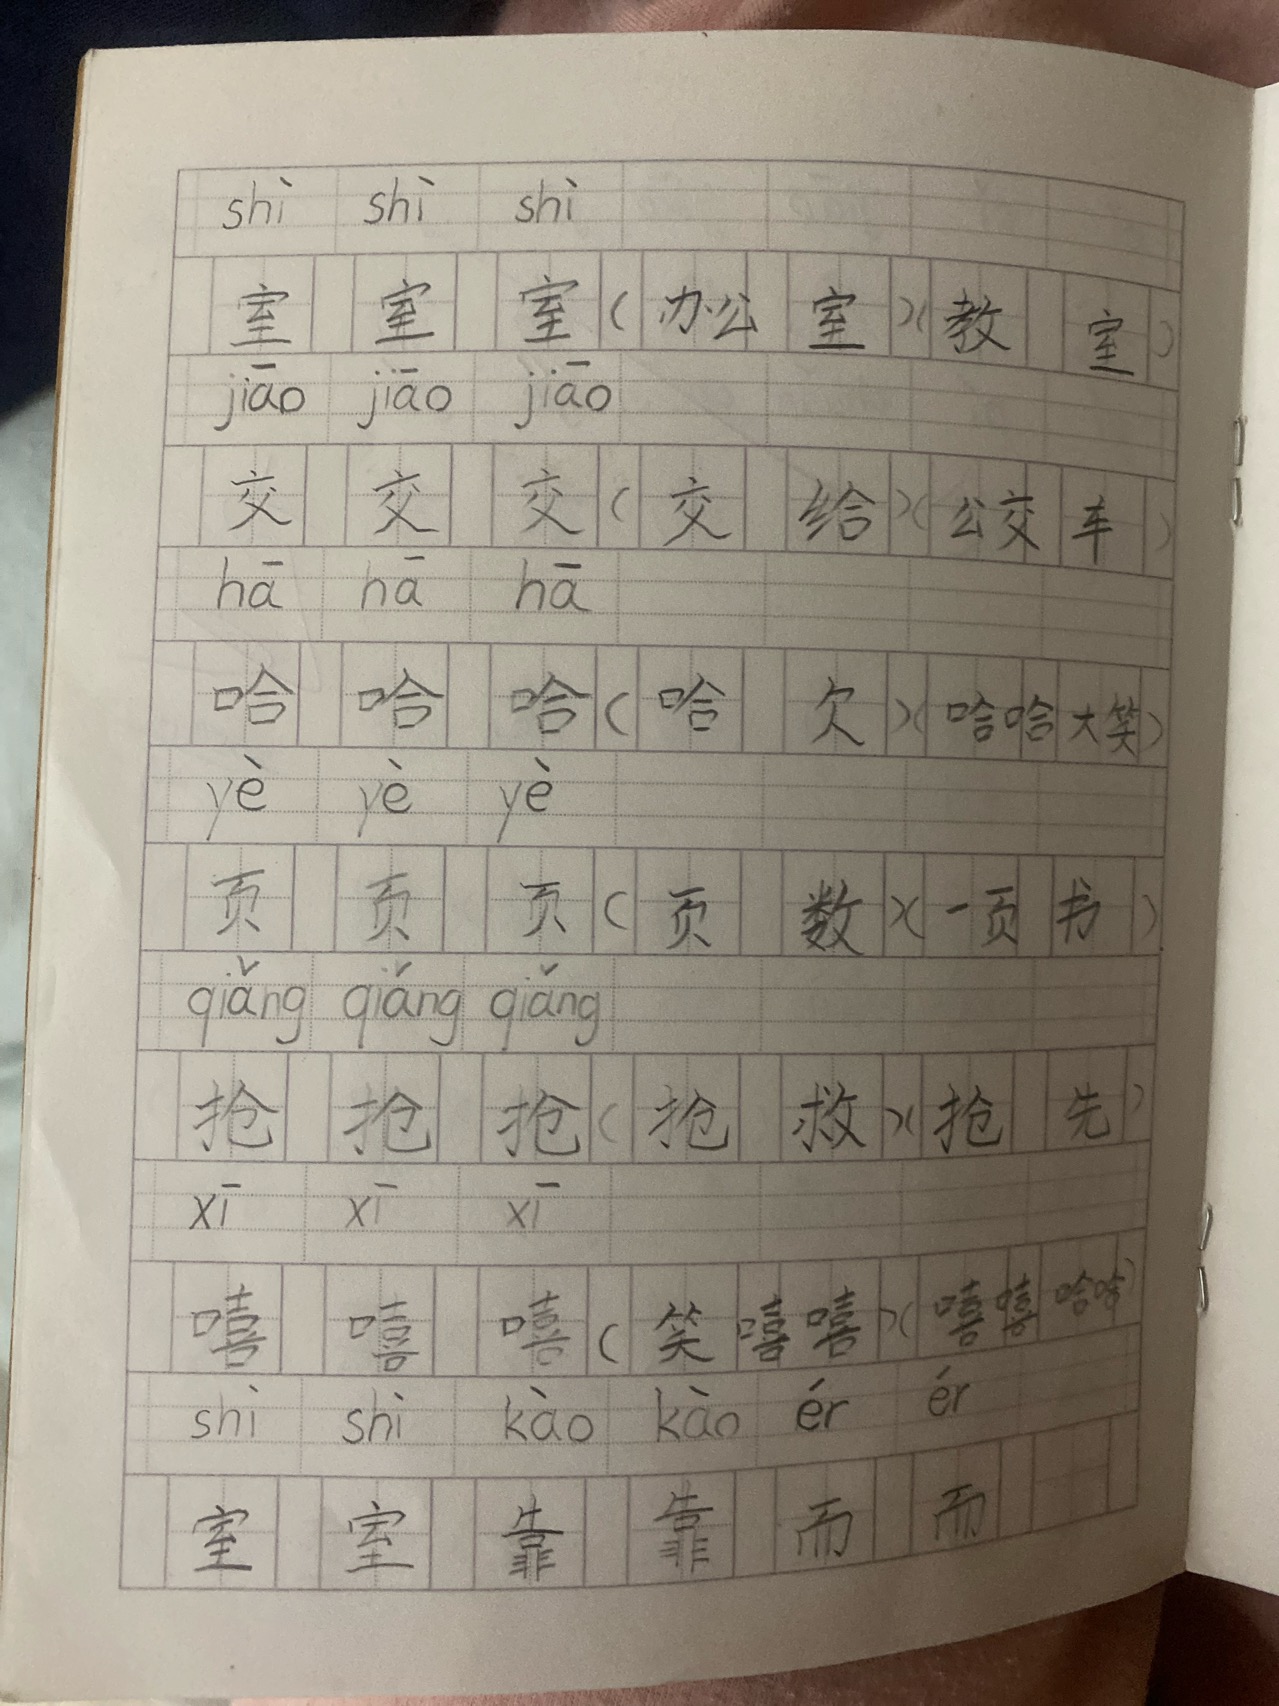 shì shì shì
室 室 室 ( 办公 室 ) ( 教 室 )
jiāo jiāo jiāo
交 交 交 ( 交 给 ) ( 公交 车 )
hā hā hā
哈 哈 哈 ( 哈 欠 ) ( 哈哈 大笑 )
yè yè yè
页 页 页 ( 页 数 ) ( 一页 书 )
qiǎng qiǎng qiǎng
抢 抢 抢 ( 抢 救 ) ( 抢 先 )
xī xī xī
嘻 嘻 嘻 ( 笑 嘻 嘻 ) ( 嘻嘻 哈哈 )
shì shì kào kào ér ér
室 室 靠 靠 而 而